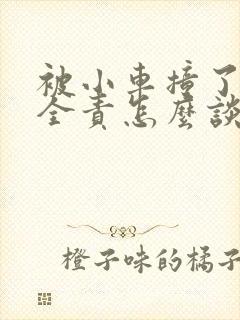 被小車撞了
全責怎麼談
橙子味的橘子